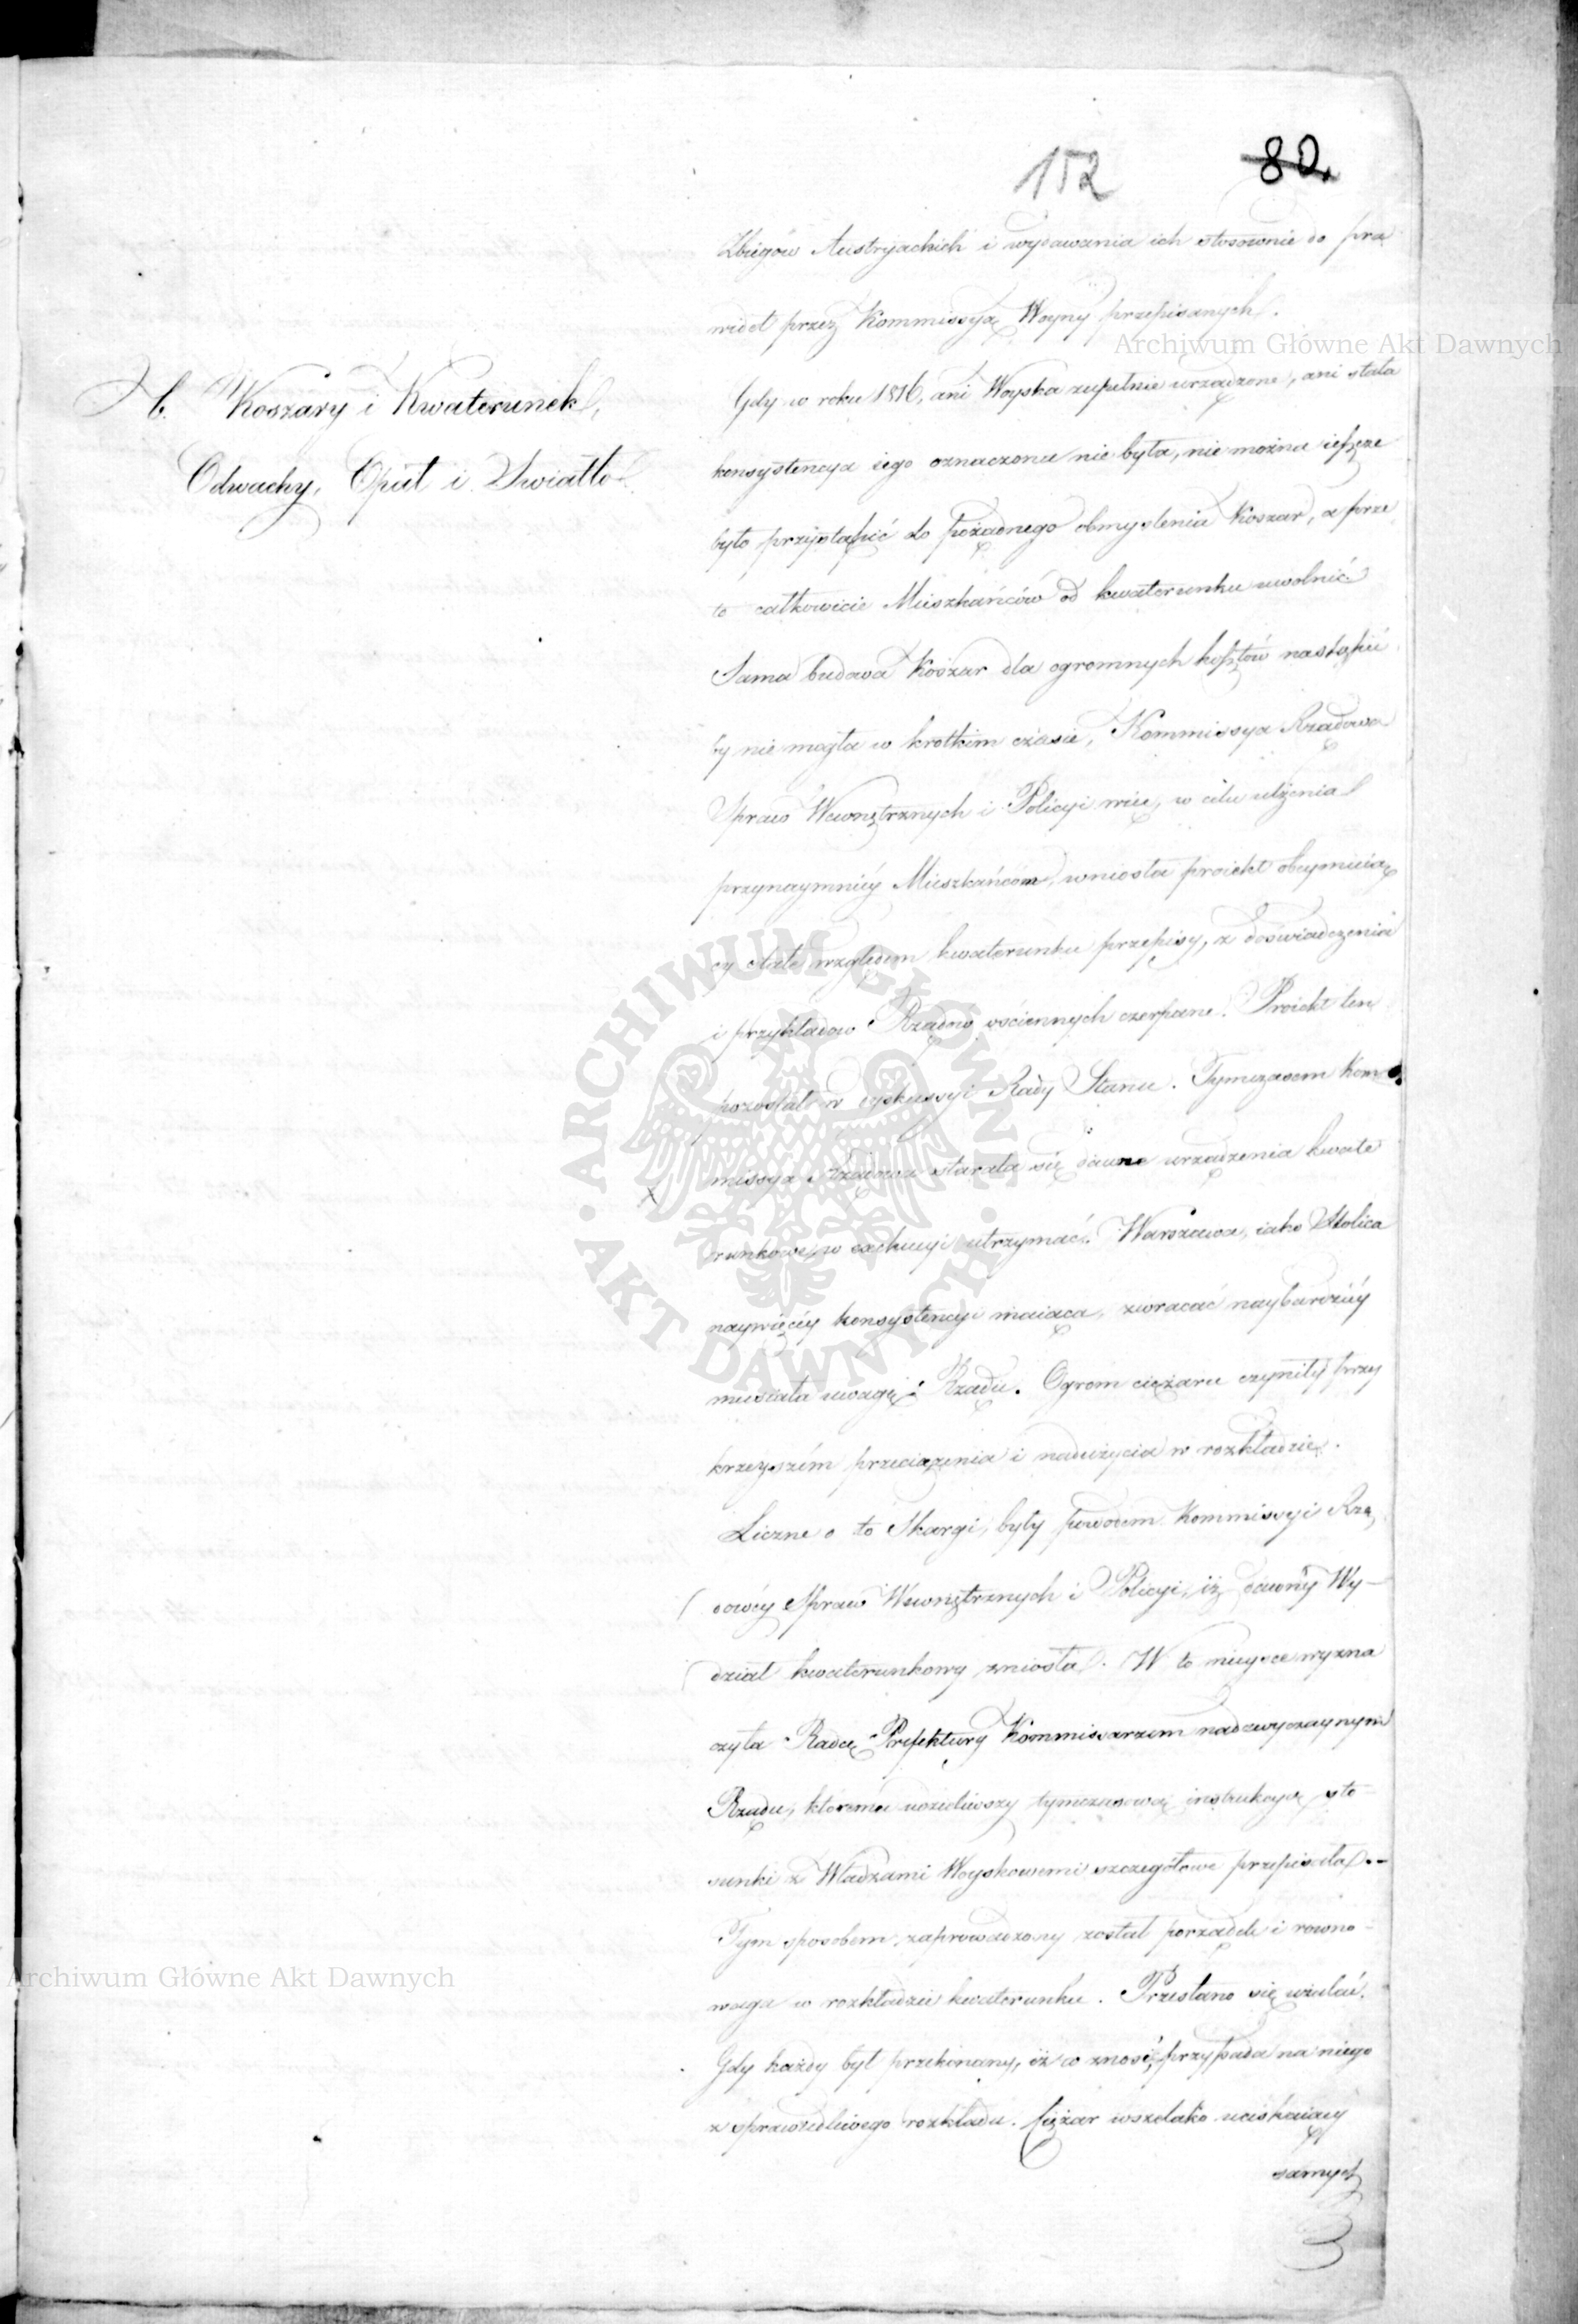 152 80.
Zbiegów Austryackich i wydawania ich stosownie do pra
wideł przez Kommissyą Woyny przepisanych.
Archiwum Główne Akt Dawnych
b. Koszary i Kwaterunek,
Odwachy, Opał i Swiatło
Gdy w roku 1816, ani Woyska zupełnie urządzone, ani stała
konsystencya iego oznaczona nie była, nie można ieszcze
było przystąpić do pożądnego obmyslenia Koszar, a prze
to całkowicie Mieszkańców od kwaterunku uwolnić.
Sama budowa Koszar dla ogromnych kosztów nastąpić
by nie mogła w krotkim czasie, Kommissya Rządowa
Spraw Wewnętrznych i Policyi więc, w celu ulżenia
przynaymniéy Mieszkańcom, wniosła proiekt obeymuią
cy stałe względem kwaterunku przepisy, z doświadczenia
i przykładow Rządow ościennych czerpane. Proiekt ten
pozostał w dyskussyi Rady Stanu. Tymczasem Kom
missya Rządowa starała się dawne urządzenia kwate
runkowe w exekucyi utrzymać. Warszawa, iako Stolica
naywięcéy konsystencyi maiąca, zwracać naybardziéy
musiała uwagę Rządu. Ogrom ciężaru czyniły przy
krzeyszém przeciążenia i nadużycia w rozkładzie.
Liczne o to Skargi, były powodem Kommissyi Rzą
dowéy Spraw Wewnętrznych i Policyi, iż dawny Wy-
dział kwaterunkowy zniosła. W to mieysce wyzna
czyła Radcę Prefektury Kommissarzem nadzwyczaynym
Rządu, któremu udzieliwszy tymczasową instrukcyą, sto-
sunki z Władzami Woyskowemi szczegółowe przepisała.
Archiwum Główne Akt Dawnych
Tym sposobem zaprowadzony został porządek i rowno-
waga w rozkładzie kwaterunku. Przestano się uwalać.
Gdy każdy był przekonany, iż co znosić, przypada na niego
z sprawiedliwego rozkładu. Ciężar wszelako uciskaiący
samych
ARCHIWUM GŁÓWNE AKT DAWNYCH